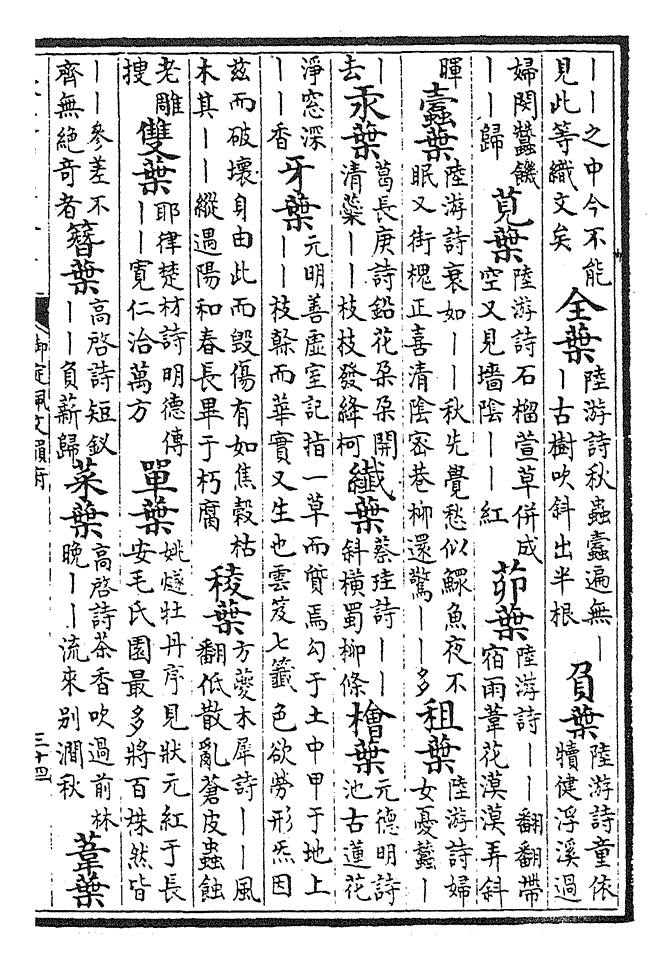 ｜｜之中今不能
見此等織文矣
全葉
陸游詩秋蟲蠹遍無｜
｜古樹吹斜出半根
負葉
陸游詩童依
犢健浮溪過
婦閔蠶饑
｜｜歸
莧葉
陸游詩石榴萱草併成
空又見墻陰｜｜紅
茆葉
陸游詩｜｜翻翻帶
宿雨葦花漠漠弄斜
暉
蠹葉
陸游詩衰如｜｜秋先覺愁似鰥魚夜不
眠又街槐正喜清陰密巷柳還驚｜｜多
租葉
陸游詩婦
女憂蠶｜
｜
去
汞葉
葛長庚詩鉛花朶朶開
清藥｜｜枝枝發絳柯
纖葉
蔡珪詩｜｜
斜橫蜀柳條
檜葉
元德明詩
池古蓮花
淨窓深
｜｜香
牙葉
元明善虛室記指一草而贊焉勾于土中甲于地上
｜｜枝榦而華實又生也雲笈七籤色欲勞形炁因
茲而破壞身由此而毀傷有如焦穀枯
木其｜｜縱遇陽和春長畢于朽腐
稜葉
方夔木犀詩｜｜風
翻低散亂蒼皮蟲蝕
老雕
搜
雙葉
耶律楚材詩明德傳
｜｜寬仁治萬方
單葉
姚燧牡丹序見狀元紅于長
安毛氏園最多將百株然皆
｜｜參差不
齊無絶奇者
簪葉
高啓詩短釵
｜｜負薪歸
菜葉
高啓詩茶香吹過前林
晚｜｜流來別澗秋
葦葉
御定佩文韻府
三十四